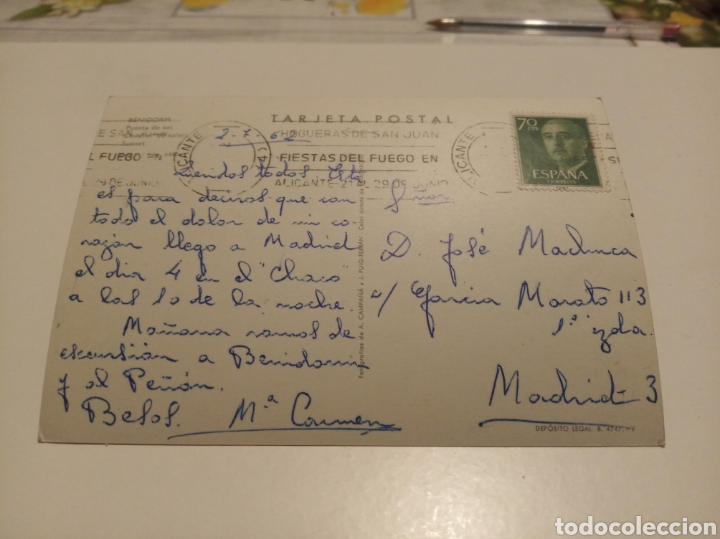 TARJETA POSTAL
BENIDORM
Puesta de sol
Sunset
2-7-62
ALICANTE
(4)
HOGUERAS DE SAN JUAN
FIESTAS DEL FUEGO EN
ALICANTE-21 AL 29 DE JUNIO
DE SAN
EL FUEGO
29 DE JUNIO
ALICANTE
70 CTS
ESPAÑA
CORREOS
todos Esta
es para deciros que con
todo el dolor de mi co
razón llego a Madrid
el dia 4 en el "Chaco"
a las 10 de la noche.
Mañana vamos de
excursión a Benidorm
y al Peñón.
Besos. Mª Carmen
Fotografías de A. CAMPAÑÁ y J. PUIG-FERRÁN
D. José
c/ García Morato 113
1º izda.
Madrid-3
DEPÓSITO LEGAL B. 4747-IV
todocoleccion